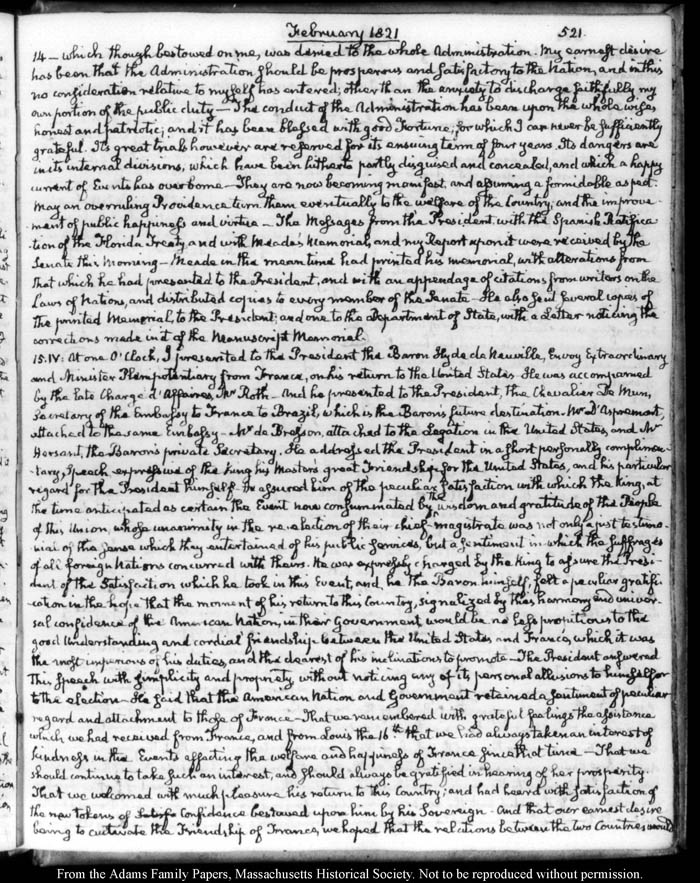 February 1821
521.
14 — which though bestowed on me, was denied to the whole Administration. My earnest desire
has been that the Administration should be prosperous and satisfactory to the Nation, and in this
no consideration relative to myself has entered; other than the anxiety to discharge faithfully my
own portion of the public duty — The conduct of the Administration has been upon the whole wise,
honest and patriotic; and it has been blessed with good Fortune, for which I can never be sufficiently
grateful. Its great trials however are reserved for its ensuing term of four years. Its dangers are
in its internal divisions, which have been hitherto partly disguised and concealed, and which a happy
current of Events has overborne — They are now becoming manifest, and assuming a formidable aspect.
May an overruling Providence turn them eventually to the welfare of the Country, and the improve-
ment of public happiness and virtue — The Messages from the President with the Spanish Ratifica-
tion of the Florida Treaty, and with Meade's Memorial, and my Report upon it were received by the
Senate this Morning — Meade in the mean time had printed his memorial, with alterations from
that which he had presented to the President, and with an appendage of citations from writers on the
Laws of Nations, and distributed copies to every member of the Senate — He also sent several copies of
the printed Memorial, to the President; and one to the Department of State, with a Letter noticing the
corrections made in it of the Manuscript Memorial.
15. IV: At one O'Clock, I presented to the President the Baron Hyde de Neuville, Envoy Extraordinary
and Minister Plenipotentiary from France, on his return to the United States. He was accompanied
by the late Chargé d'Affaires, Mr Roth — And he presented to the President, the Chevalier de Mun,
Secretary of the Embassy to France to Brazil, which is the Baron's future destination. Mr D'Aspremont,
attached to the same Embassy — Mr de Bresson, attached to the Legation in the United States, and Mr
Hersant, the Baron's private Secretary. He addressed the President in a short personally complimen-
tary, speech expressive of the King his Master's great Friendship for the United States, and his particular
regard for the President himself — He assured him of the peculiar satisfaction with which the king, at
the time anticipated as certain the Event now consummated by the wisdom and gratitude of the People
of this Union, whose unanimity in the re-election of their chief-magistrate was not only a just testimo-
nial of the sense which they entertained of his public services, but a sentiment in which the suffrages
of all foreign Nations concurred with theirs. He was expressly charged by the King to assure the Presi-
dent of the satisfaction which he took in this Event, and, he the Baron himself, felt a peculiar gratifi-
cation in the hope that the moment of his return to this Country, signalized by this harmony and univer-
sal confidence of the American Nation, in their Government would be no less propitious to the
good Understanding and cordial friendship between the United States and France, which it was
the most imperious of his duties, and the dearest of his inclinations to promote — The President answered
this speech with simplicity and propriety, without noticing any of its personal allusions to himself or
to the election — He said that the American Nation and Government retained a sentiment of peculiar
regard and attachment to those of France — That we remembered with grateful feelings the assistance
which we had received from France, and from Louis the 16th that we had always taken an interest of
kindness in the Events affecting the welfare and happiness of France since that time — That we
should continue to take such an interest, and should always be gratified in hearing of her prosperity.
That we welcomed with much pleasure his return to this Country; and had heard with satisfaction of
the new tokens of confidence bestowed upon him by his Sovereign. And that our earnest desire
being to cultivate the Friendship of France, we hoped that the relations between the two Countries would
From the Adams Family Papers, Massachusetts Historical Society. Not to be reproduced without permission.